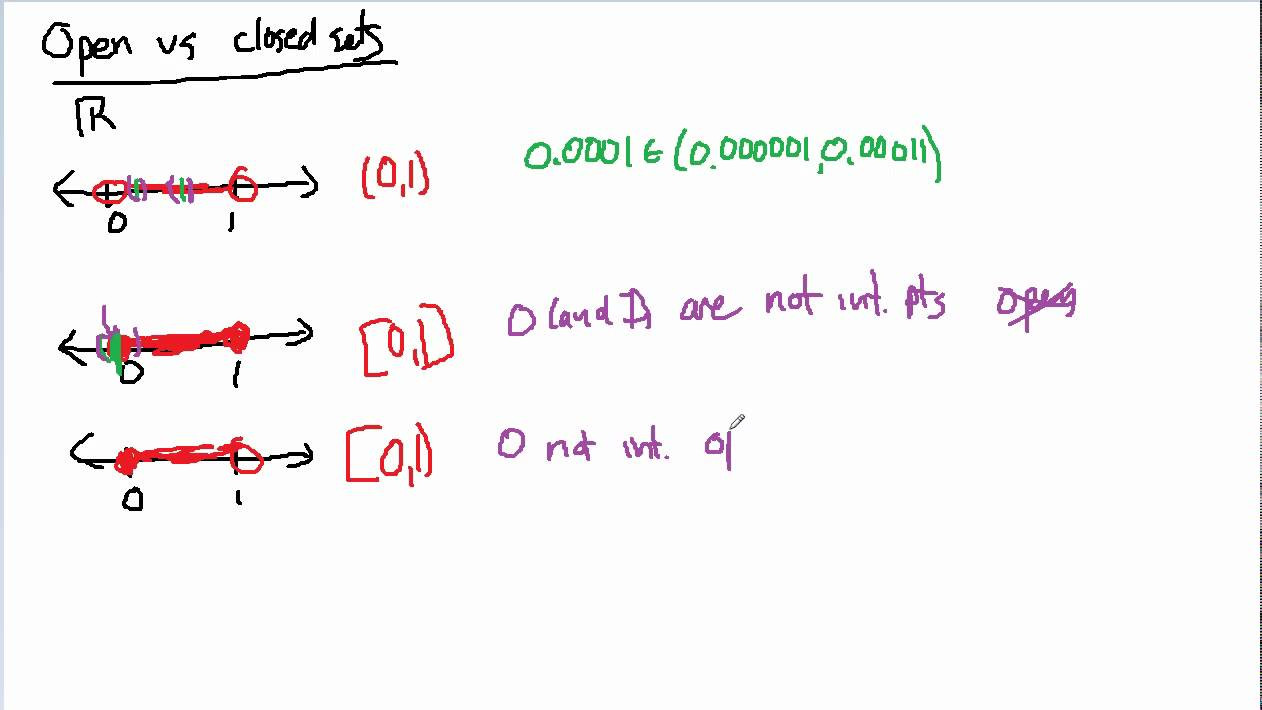 Open vs closed sets
ℝ
0 1 (0,1) 0.0001 ∈ (0.000001, 0.00011)
0 1 [0,1] 0 (and 1) are not int. pts open
0 1 [0,1) 0 not int.